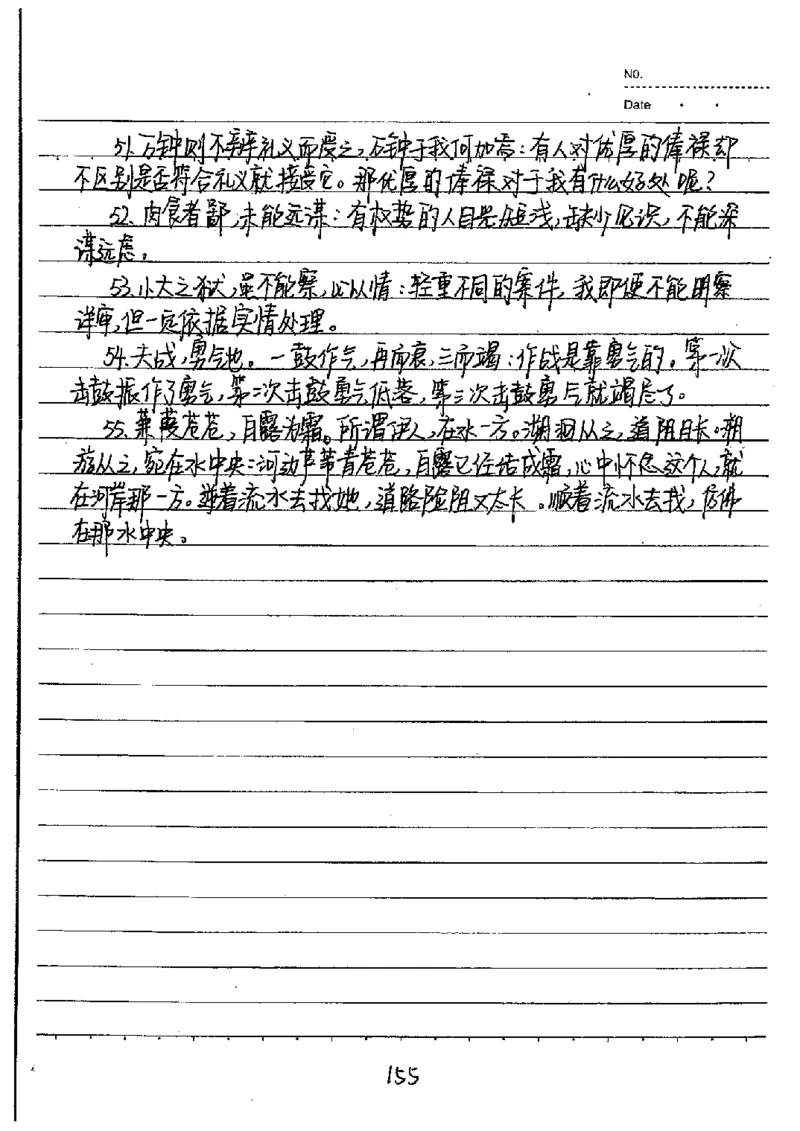 NO.
Date
51.万钟则不辩礼义而受之,万钟于我何加焉:有人对优厚的俸禄却
不区别是否符合礼义就接受它。那优厚的俸禄对于我有什么好处呢?
52.肉食者鄙,未能远谋:有权势的人目光短浅,缺少见识,不能深
谋远虑。
53.小大之狱,虽不能察,必以情:轻重不同的案件,我即便不能明察
详审,但一定依据实情处理。
54.夫战,勇气也。一鼓作气,再而衰,三而竭:作战是靠勇气的。第一次
击鼓振作了勇气,第二次击鼓勇气低落,第三次击鼓勇气就竭尽了。
55.蒹葭苍苍,白露为霜。所谓伊人,在水一方。溯洄从之,道阻且长。溯
游从之,宛在水中央:河边芦苇青苍苍,白露已经结成霜,心中怀念这个人,就
在河岸那一方。逆着流水去找她,道路险阻又太长。顺着流水去找,仿佛
在那水中央。
155